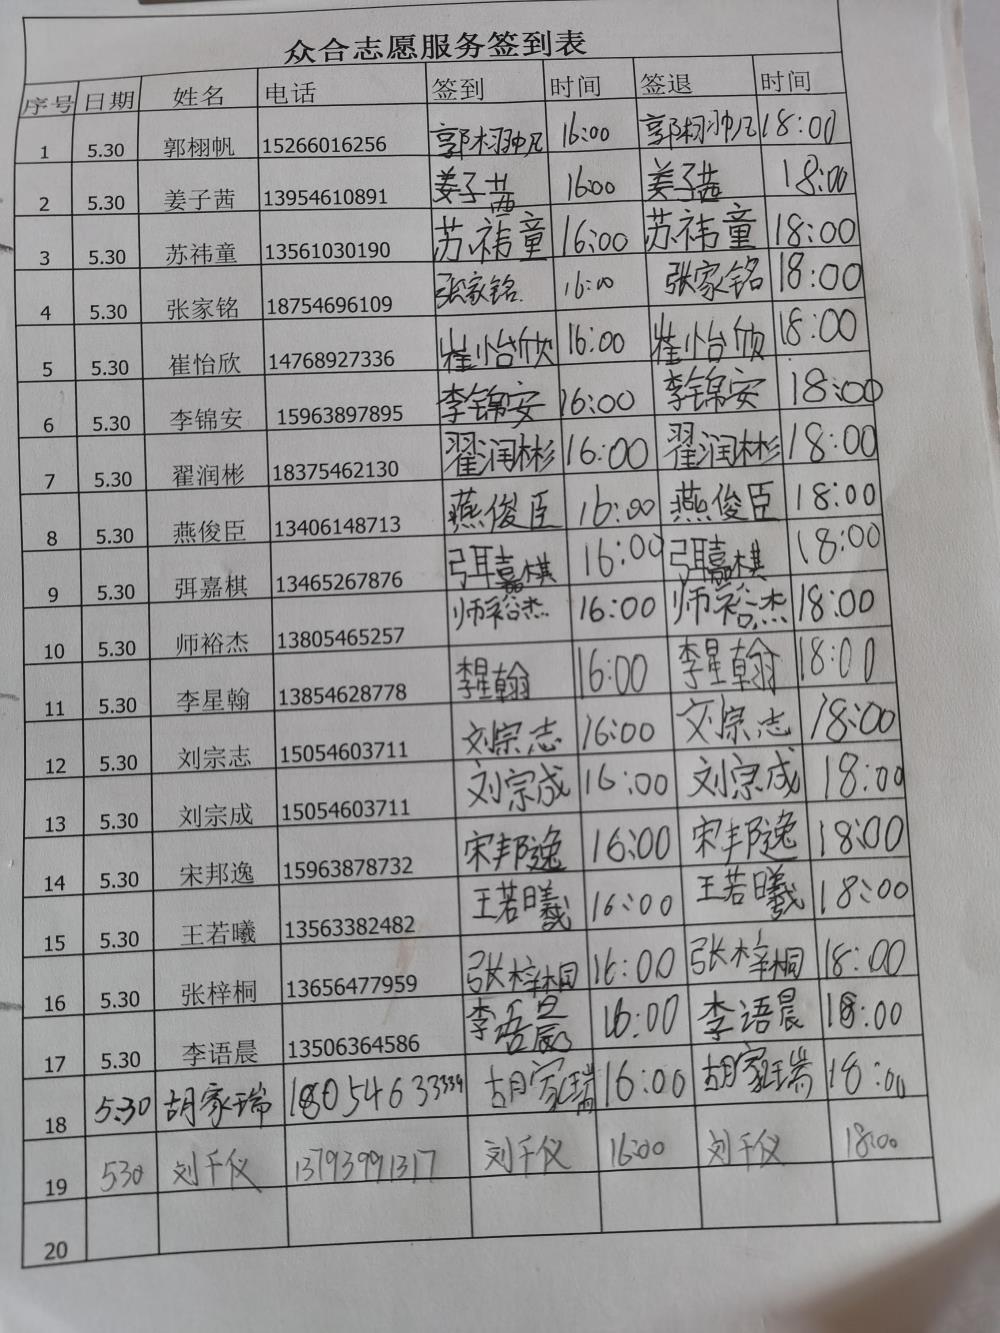 众合志愿服务签到表
序号 日期 姓名 电话 签到 时间 签退 时间
1 5.30 郭栩帆 15266016256 郭栩帆 16:00 郭栩帆 18:00
2 5.30 姜子茜 13954610891 姜子茜 16:00 姜子茜 18:00
3 5.30 苏祎童 13561030190 苏祎童 16:00 苏祎童 18:00
4 5.30 张家铭 18754696109 张家铭 16:00 张家铭 18:00
5 5.30 崔怡欣 14768927336 崔怡欣 16:00 崔怡欣 18:00
6 5.30 李锦安 15963897895 李锦安 16:00 李锦安 18:00
7 5.30 翟润彬 18375462130 翟润彬 16:00 翟润彬 18:00
8 5.30 燕俊臣 13406148713 燕俊臣 16:00 燕俊臣 18:00
9 5.30 弭嘉棋 13465267876 弭嘉棋 16:00 弭嘉棋 18:00
10 5.30 师裕杰 13805465257 师裕杰 16:00 师裕杰 18:00
11 5.30 李星翰 13854628778 李星翰 16:00 李星翰 18:00
12 5.30 刘宗志 15054603711 刘宗志 16:00 刘宗志 18:00
13 5.30 刘宗成 15054603711 刘宗成 16:00 刘宗成 18:00
14 5.30 宋邦逸 15963878732 宋邦逸 16:00 宋邦逸 18:00
15 5.30 王若曦 13563382482 王若曦 16:00 王若曦 18:00
16 5.30 张梓桐 13656477959 张梓桐 16:00 张梓桐 18:00
17 5.30 李语晨 13506364586 李语晨 16:00 李语晨 18:00
18 5.30 胡家瑞 18054633339 胡家瑞 16:00 胡家瑞 18:00
19 530 刘千仪 13793991317 刘千仪 16:00 刘千仪 18:00
20